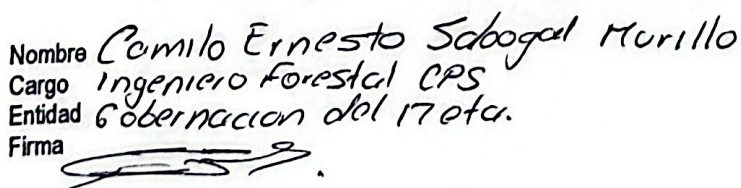 Nombre Camilo Ernesto Sabogal Murillo
Cargo Ingeniero Forestal CPS
Entidad Gobernacion del Meta.
Firma